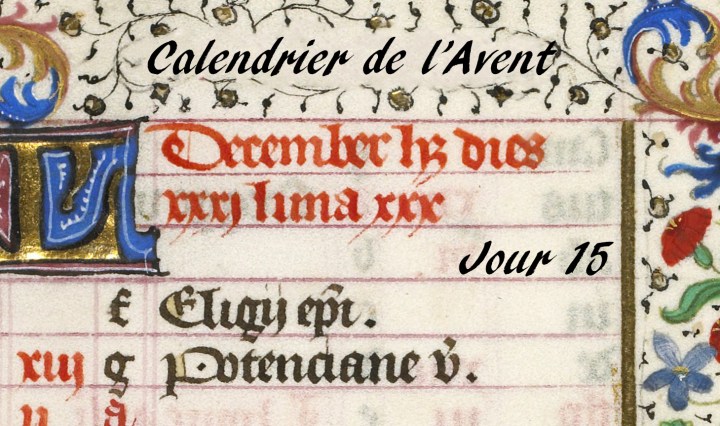 Calendrier de l'Avent
KL
December hȝ dies
xxxi luna xxx
Jour 15
f Eligij ep̄i.
xiij g Potenciane v̄.
ij A